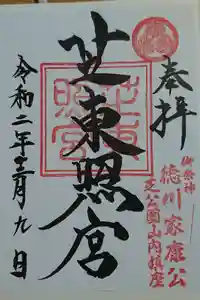 奉拝
御祭神
徳川家康公
芝公園山内鎮座
芝東照宮
芝東
照宮
令和二年十二月九日